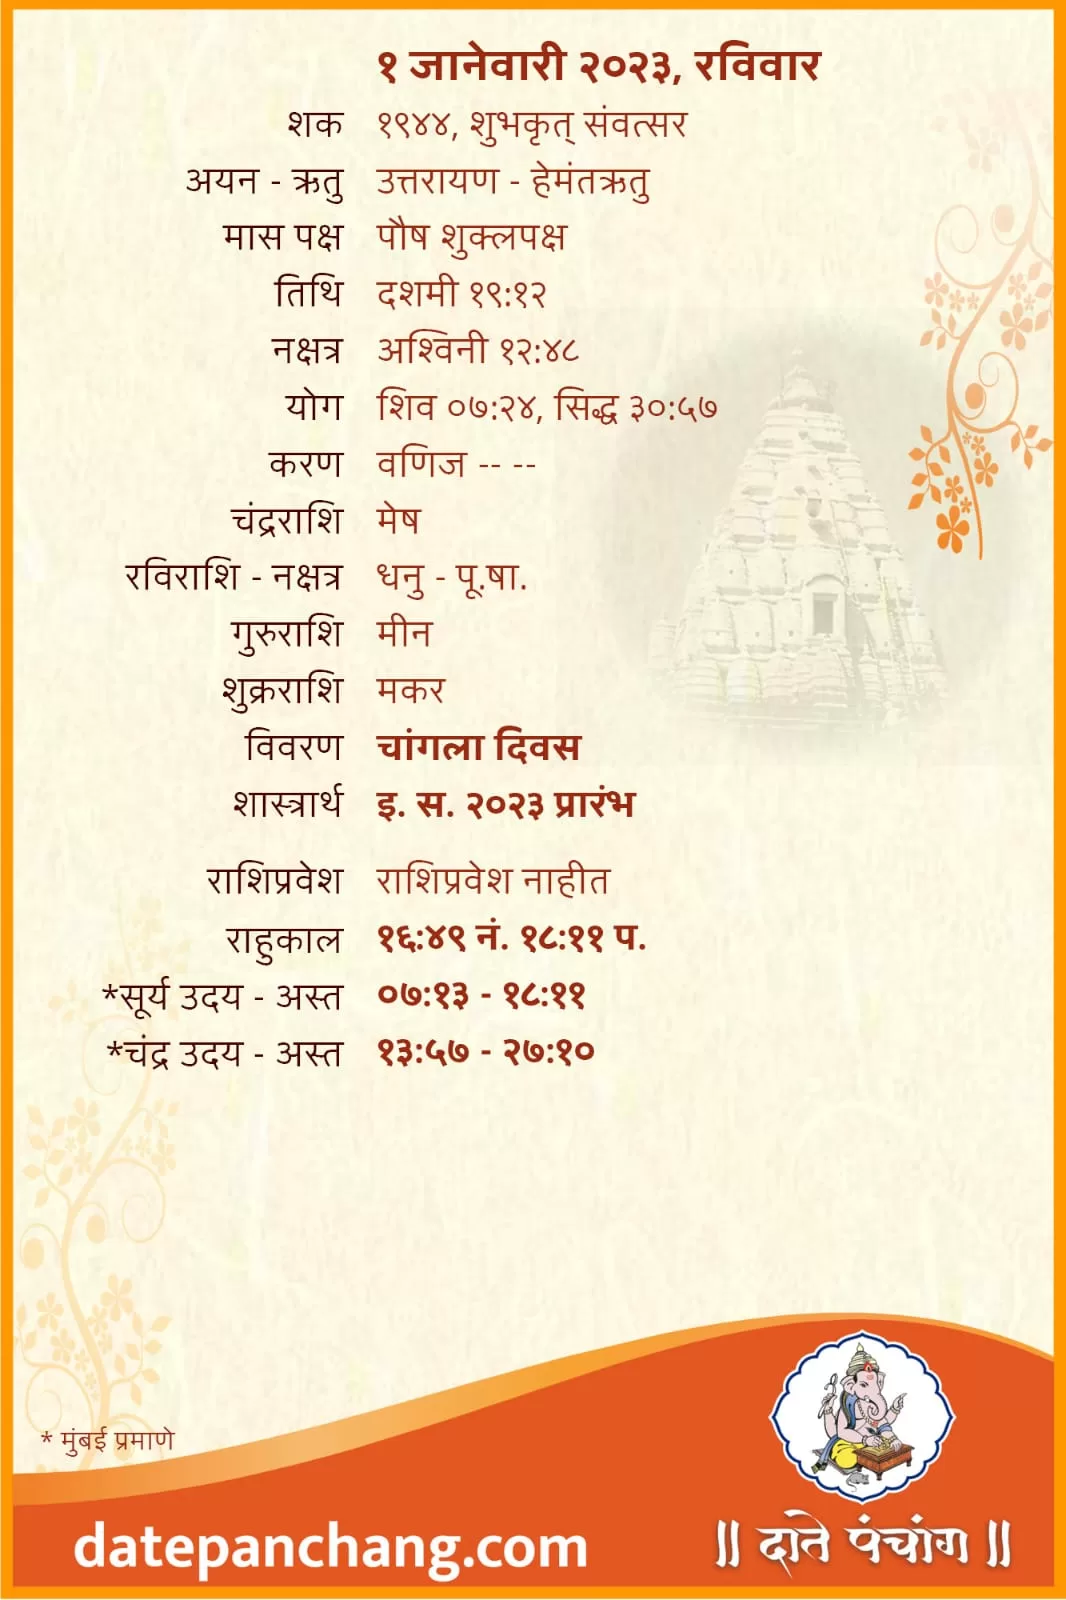 १ जानेवारी २०२३, रविवार
शक १९४४, शुभकृत् संवत्सर
अयन - ऋतु उत्तरायण - हेमंतऋतु
मास पक्ष पौष शुक्लपक्ष
तिथि दशमी १९:१२
नक्षत्र अश्विनी १२:४८
योग शिव ०७:२४, सिद्ध ३०:५७
करण वणिज -- --
चंद्रराशि मेष
रविराशि - नक्षत्र धनु - पू.षा.
गुरुराशि मीन
शुक्रराशि मकर
विवरण चांगला दिवस
शास्त्रार्थ इ. स. २०२३ प्रारंभ
राशिप्रवेश राशिप्रवेश नाहीत
राहुकाल १६:४९ नं. १८:११ प.
*सूर्य उदय - अस्त ०७:१३ - १८:११
*चंद्र उदय - अस्त १३:५७ - २७:१०
* मुंबई प्रमाणे
datepanchang.com
॥ दाते पंचांग ॥